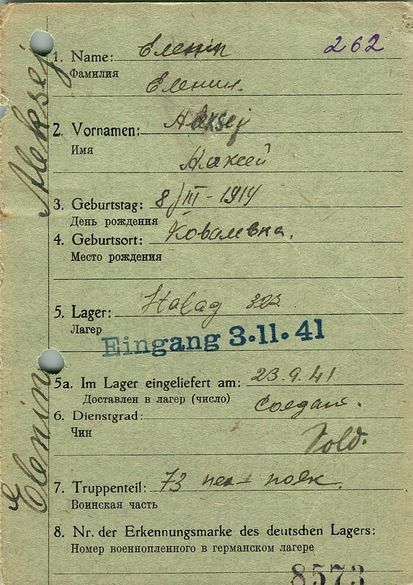 262
1. Name: Еленin
Фамилия
Еленин.
2. Vornamen: Aleksej
Имя
Алексей
3. Geburtstag: 8/III - 1914
День рождения
4. Geburtsort:
Место рождения
5. Lager: Stalag 303
Лагер
Eingang 3.11.41
5a. Im Lager eingeliefert am: 23.9.41
Доставлен в лагер (число)
6. Dienstgrad: Солдат.
Чин
Sold.
7. Truppenteil: 73 полк.
Воинская часть
8. Nr. der Erkennungsmarke des deutschen Lagers:
Номер военнопленного в германском лагере
8573
Elenin
Aleksej